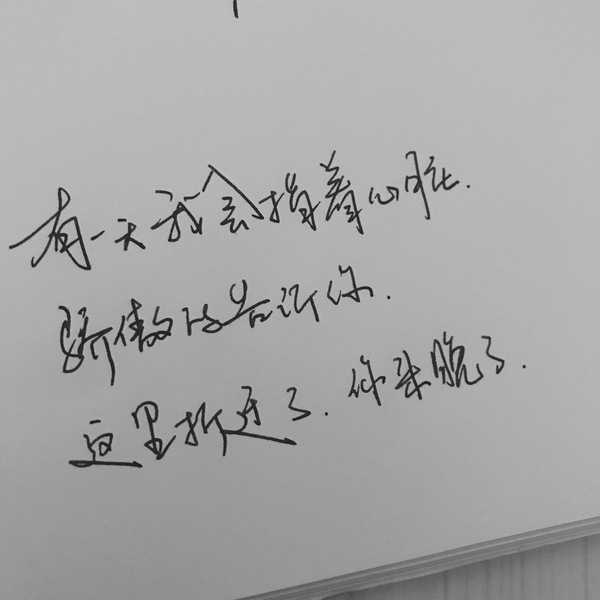 有一天我会指着心脏.
骄傲的告诉你.
这里拆迁了.你来晚了.